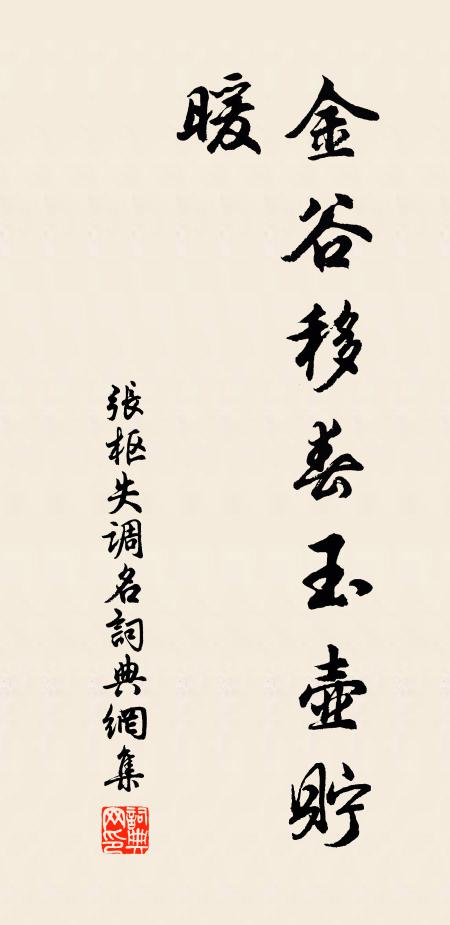 金谷移春玉壺貯
暖
張枢失调名詞典網集
詞典網印